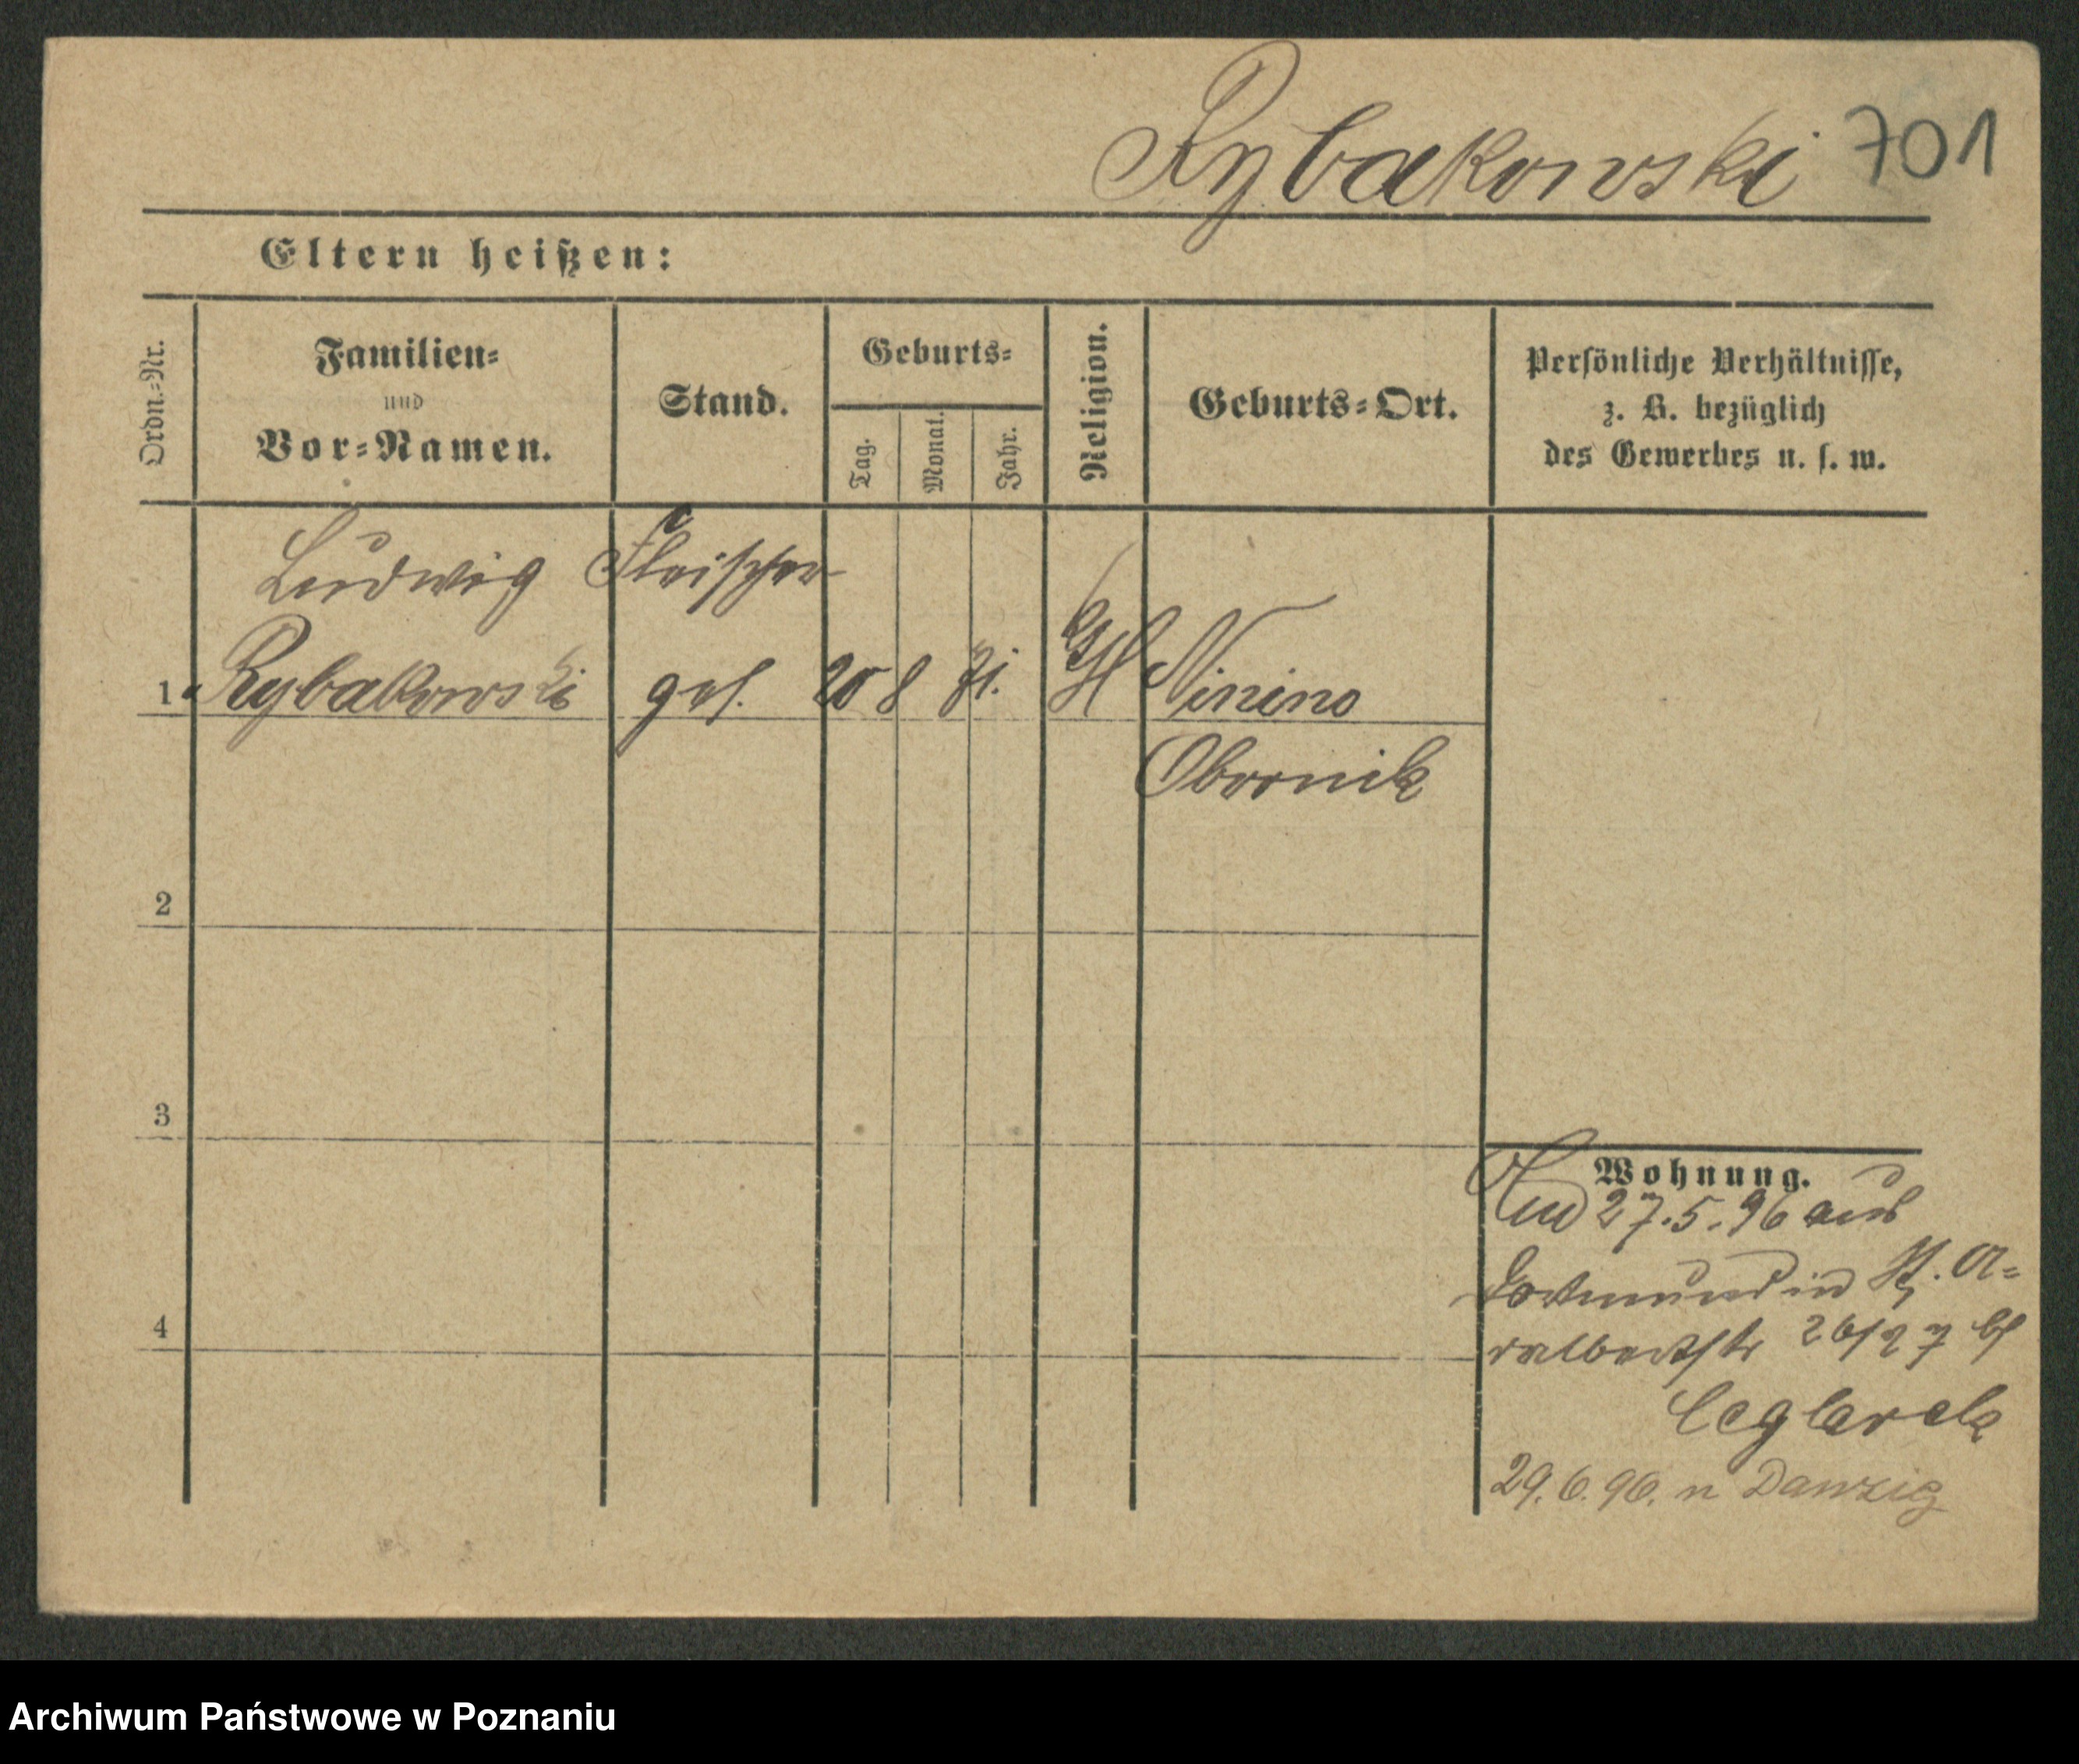 Rybakowski 701
Eltern heißen:
Ordn.-Nr.
Familien-
und
Vor-Namen.
Stand.
Geburts-
Tag.
Monat.
Jahr.
Religion.
Geburts-Ort.
Persönliche Verhältnisse,
z. B. bezüglich
des Gewerbes u. s. w.
Ludwig Fleischer
1 Rybakowski ges. 20 8 71. Ninino
Obornik
2
3
4
Wohnung.
27.5.96 aus
Dortmund in St. A-
dalbertstr 26/27 bs
Ceglarek
29.6.96. n Danzig
Archiwum Państwowe w Poznaniu